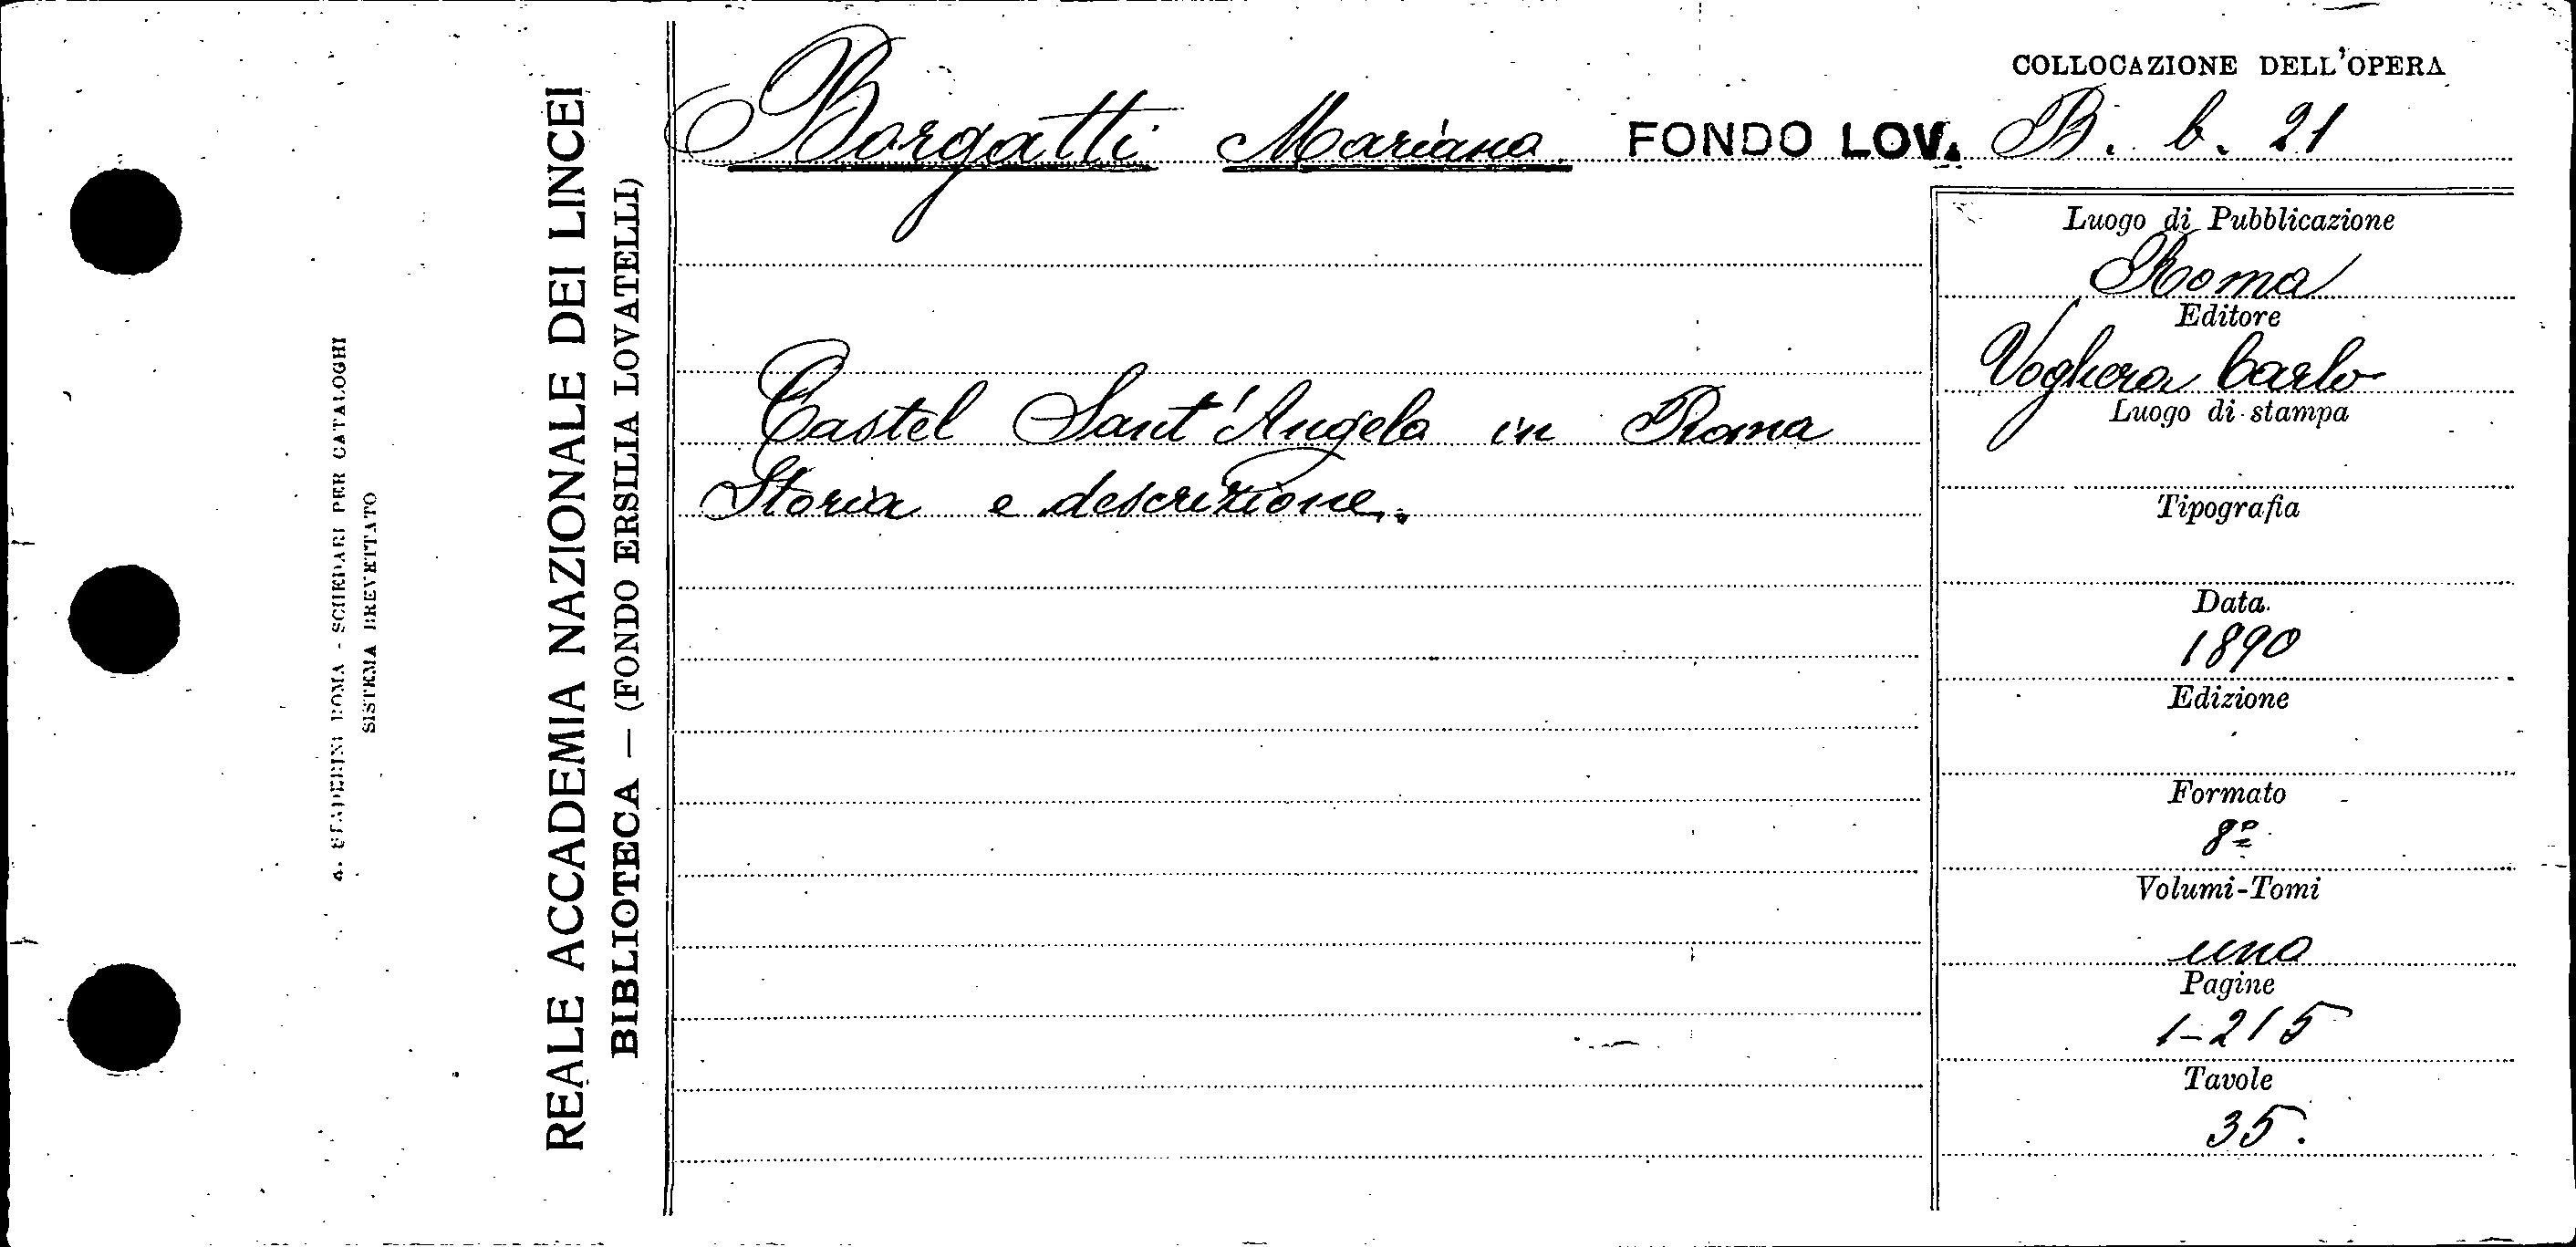 COLLOCAZIONE DELL'OPERA
Borgatti Mariano FONDO LOV. B. b. 21
Castel Sant'Angelo in Roma
Storia e descrizione.
Luogo di Pubblicazione
Roma
Editore
Voghera Carlo
Luogo di stampa
Tipografia
Data
1890
Edizione
Formato
8º
Volumi-Tomi
uno
Pagine
1-215
Tavole
35.
REALE ACCADEMIA NAZIONALE DEI LINCEI
BIBLIOTECA — (FONDO ERSILIA LOVATELLI)
ROMA - SCHEDARI PER CATALOGHI
SISTEMA BREVETTATO